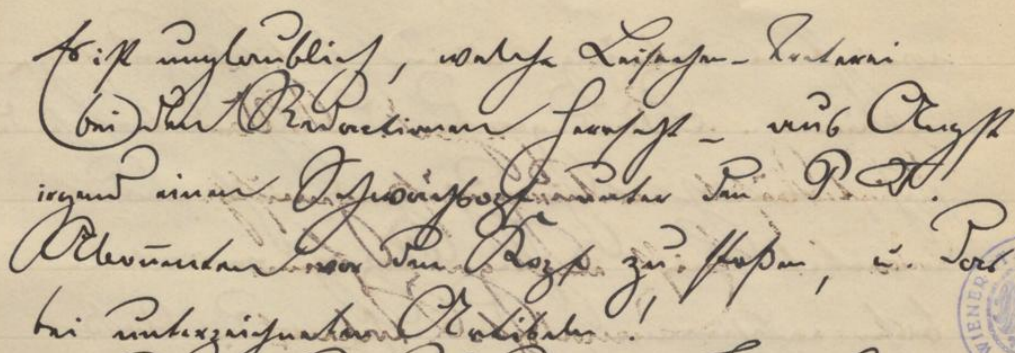 Es ist unglaublich, welche Leisetreterei
bei den Redactionen herrscht – aus Angst
irgend einen unter den P. T.
Abonnenten vor den Kopf zu stoßen, u. das
bei unterzeichneten Artikeln.
WIENER